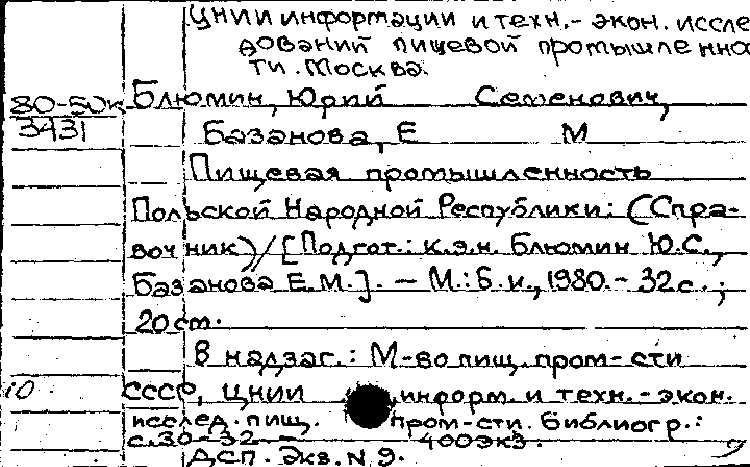 ЦНИИ информации и техн.- экон. иссле
дований пищевой промышленно
ти. Москва.
80-50к Блюмин, Юрий Семенович,
3431 Базанова, Е М
Пищевая промышленность
Польской Народной Республики: (Спра-
вочник)/[Подгот.: к.э.н. Блюмин Ю.С.,
Базанова Е.М.]. — М.: Б.и., 1980.- 32 с.;
20 см.
В надзаг.: М-во пищ. пром-сти
10. СССР, ЦНИИ информ. и техн.-экон.
исслед. пищ. пром-сти. Библиогр.:
с.30-32. - 400 экз.
ДСП. Экз. N 9.